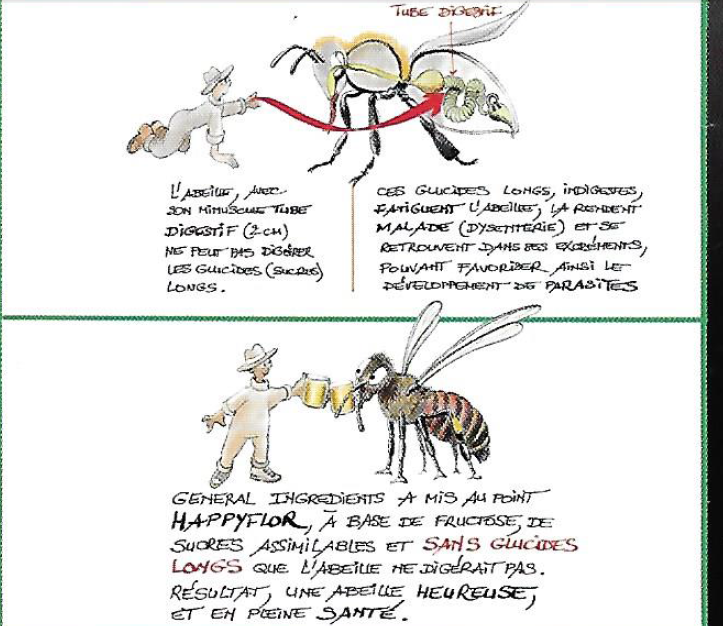 TUBE DIGESTIF
L'ABEILLE, AVEC
SON MINUSCULE TUBE
DIGESTIF (2 CM)
NE PEUT PAS DIGÉRER
LES GLUCIDES (SUCRES)
LONGS.
CES GLUCIDES LONGS, INDIGESTES,
FATIGUENT L'ABEILLE, LA RENDENT
MALADE (DYSENTERIE) ET SE
RETROUVENT DANS SES EXCRÉMENTS,
POUVANT FAVORISER AINSI LE
DÉVELOPPEMENT DE PARASITES
GENERAL INGREDIENTS A MIS AU POINT
HAPPYFLOR, À BASE DE FRUCTOSE, DE
SUCRES ASSIMILABLES ET SANS GLUCIDES
LONGS QUE L'ABEILLE NE DIGÉRAIT PAS.
RÉSULTAT, UNE ABEILLE HEUREUSE,
ET EN PLEINE SANTÉ.